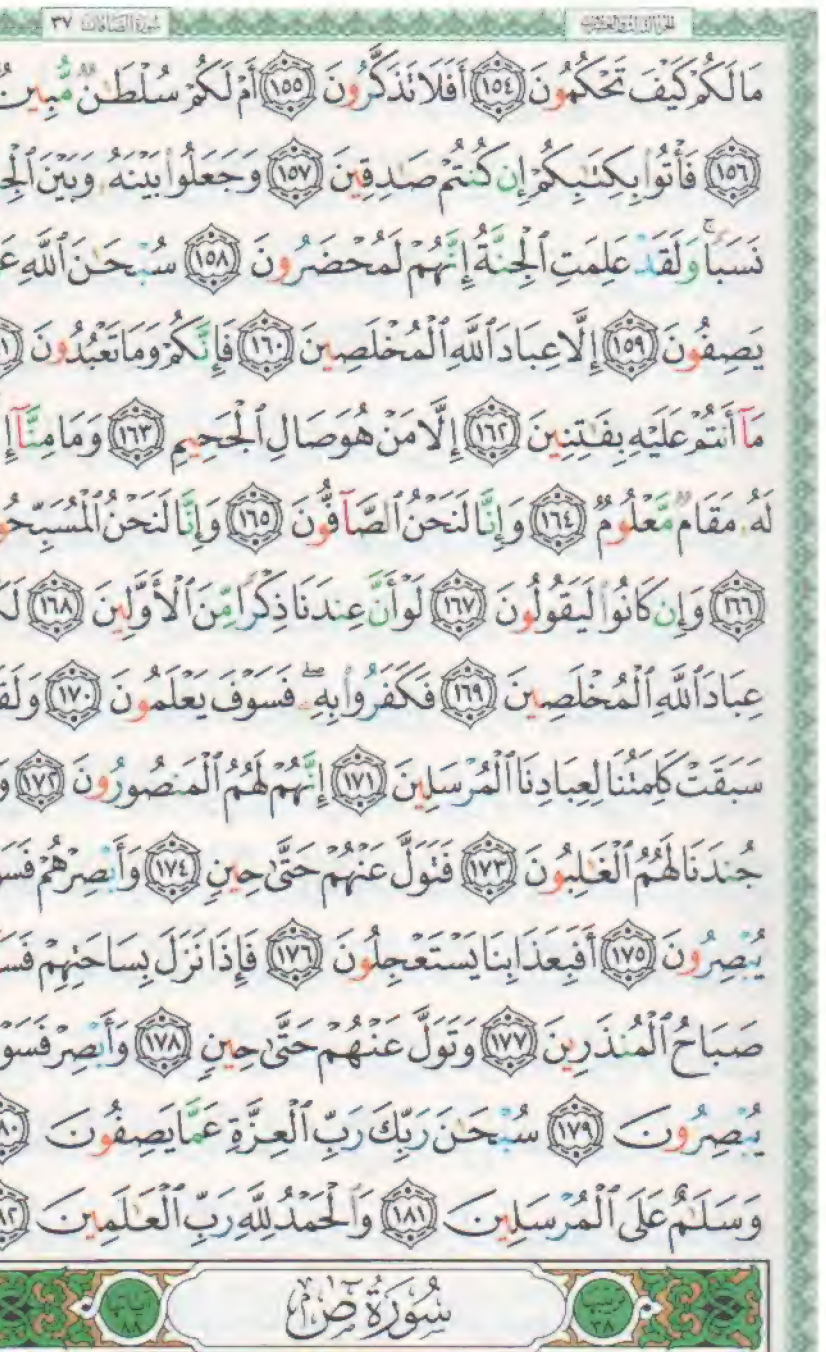 سُورَةُ الصَّافَّاتِ ٣٧
مَا لَكُمْ كَيْفَ تَحْكُمُونَ ١٥٤ أَفَلَا تَذَكَّرُونَ ١٥٥ أَمْ لَكُمْ سُلْطَٰنٌ مُّبِينٌ
١٥٦ فَأْتُوا۟ بِكِتَٰبِكُمْ إِن كُنتُمْ صَٰدِقِينَ ١٥٧ وَجَعَلُوا۟ بَيْنَهُۥ وَبَيْنَ ٱلْجِ
نَسَبًا ۚ وَلَقَدْ عَلِمَتِ ٱلْجِنَّةُ إِنَّهُمْ لَمُحْضَرُونَ ١٥٨ سُبْحَٰنَ ٱللَّهِ عَ
يَصِفُونَ ١٥٩ إِلَّا عِبَادَ ٱللَّهِ ٱلْمُخْلَصِينَ ١٦٠ فَإِنَّكُمْ وَمَا تَعْبُدُونَ
مَآ أَنتُمْ عَلَيْهِ بِفَٰتِنِينَ ١٦٢ إِلَّا مَنْ هُوَ صَالِ ٱلْجَحِيمِ ١٦٣ وَمَا مِنَّآ إِ
لَهُۥ مَقَامٌ مَّعْلُومٌ ١٦٤ وَإِنَّا لَنَحْنُ ٱلصَّآفُّونَ ١٦٥ وَإِنَّا لَنَحْنُ ٱلْمُسَبِّحُو
١٦٦ وَإِن كَانُوا۟ لَيَقُولُونَ ١٦٧ لَوْ أَنَّ عِندَنَا ذِكْرًا مِّنَ ٱلْأَوَّلِينَ ١٦٨ لَكُ
عِبَادَ ٱللَّهِ ٱلْمُخْلَصِينَ ١٦٩ فَكَفَرُوا۟ بِهِۦ ۖ فَسَوْفَ يَعْلَمُونَ ١٧٠ وَلَقَ
سَبَقَتْ كَلِمَتُنَا لِعِبَادِنَا ٱلْمُرْسَلِينَ ١٧١ إِنَّهُمْ لَهُمُ ٱلْمَنصُورُونَ ١٧٢ وَ
جُندَنَا لَهُمُ ٱلْغَٰلِبُونَ ١٧٣ فَتَوَلَّ عَنْهُمْ حَتَّىٰ حِينٍ ١٧٤ وَأَبْصِرْهُمْ فَسَو
يُبْصِرُونَ ١٧٥ أَفَبِعَذَابِنَا يَسْتَعْجِلُونَ ١٧٦ فَإِذَا نَزَلَ بِسَاحَتِهِمْ فَسَ
صَبَاحُ ٱلْمُنذَرِينَ ١٧٧ وَتَوَلَّ عَنْهُمْ حَتَّىٰ حِينٍ ١٧٨ وَأَبْصِرْ فَسَوْ
يُبْصِرُونَ ١٧٩ سُبْحَٰنَ رَبِّكَ رَبِّ ٱلْعِزَّةِ عَمَّا يَصِفُونَ ١٨٠
وَسَلَٰمٌ عَلَى ٱلْمُرْسَلِينَ ١٨١ وَٱلْحَمْدُ لِلَّهِ رَبِّ ٱلْعَٰلَمِينَ ١٨٢
ترتيبها ٣٨ سُورَةُ صٓ آياتها ٨٨